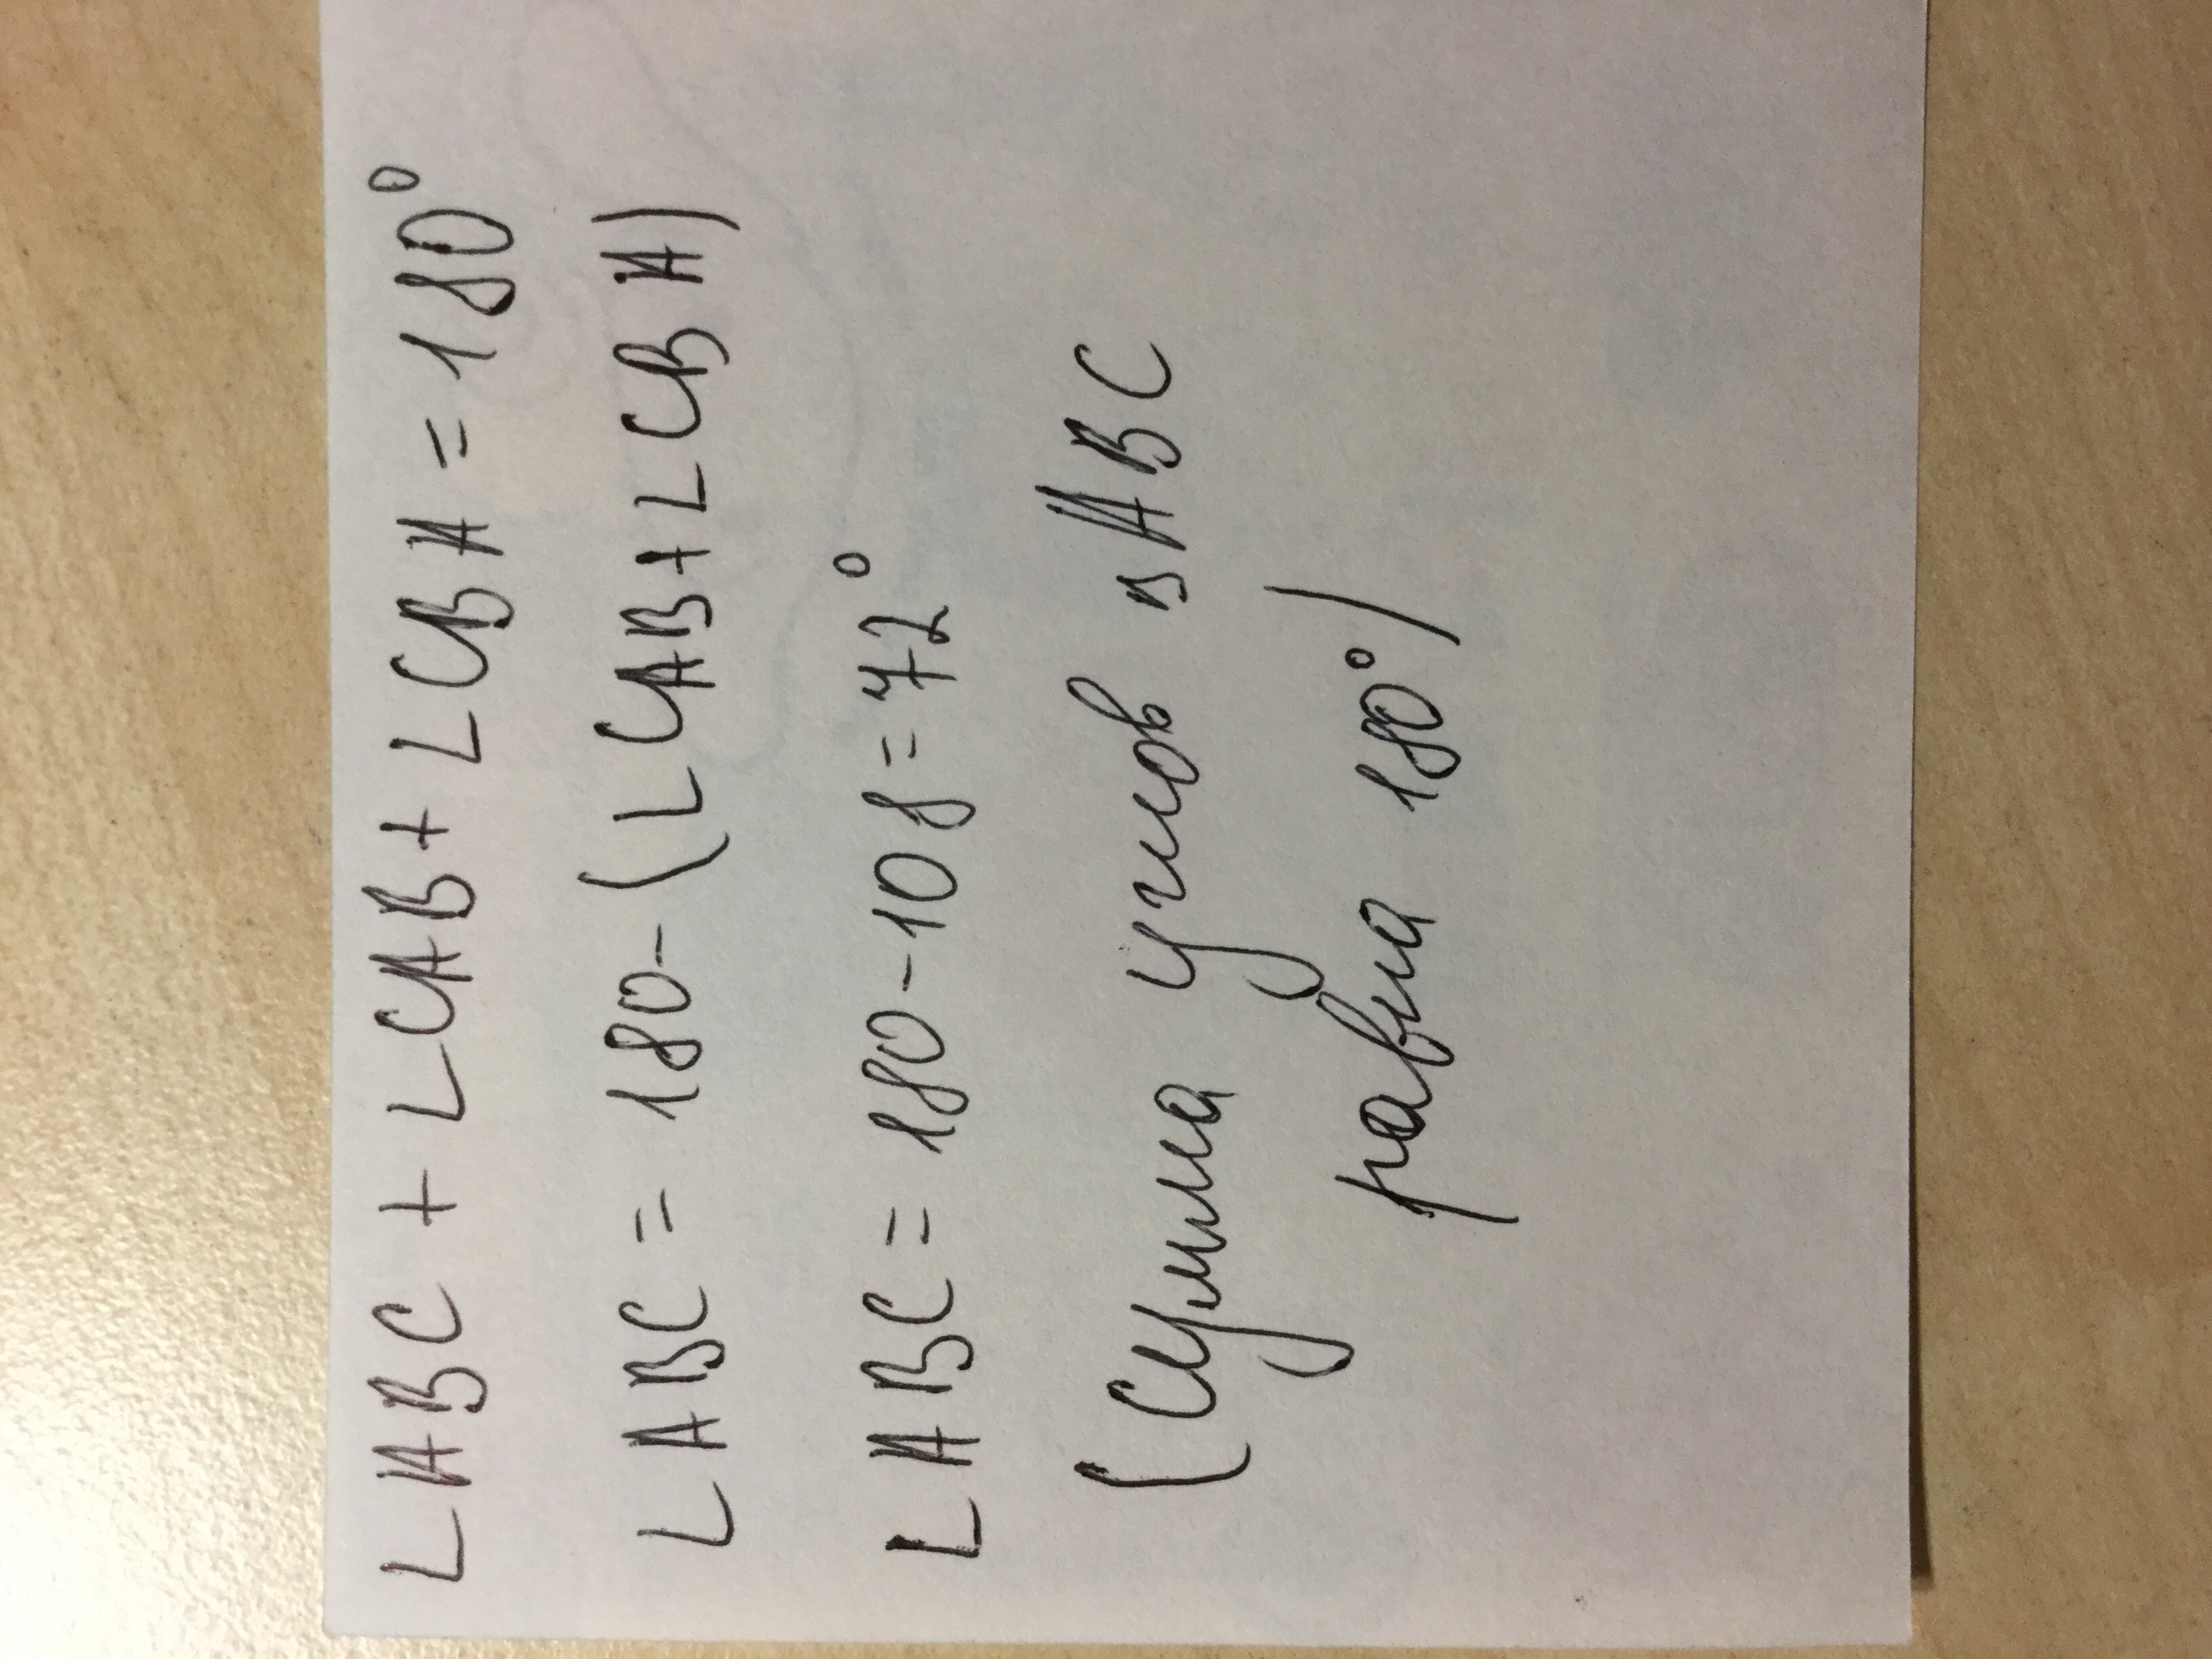 ∠ABC + ∠CAB + ∠CBA = 180°
∠ABC = 180-(∠CAB+∠CBA)
∠ABC = 180-108=72°
(Сумма углов в ABC
равна 180°)